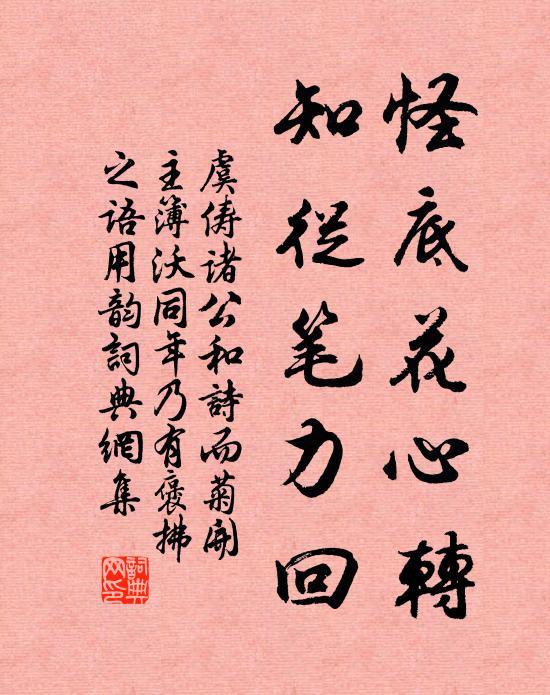 怪底花心轉
知從笔力回
虞俦诸公和詩而菊開
主簿沃同年乃有褒拂
之语用韵詞典網集
詞典
网印